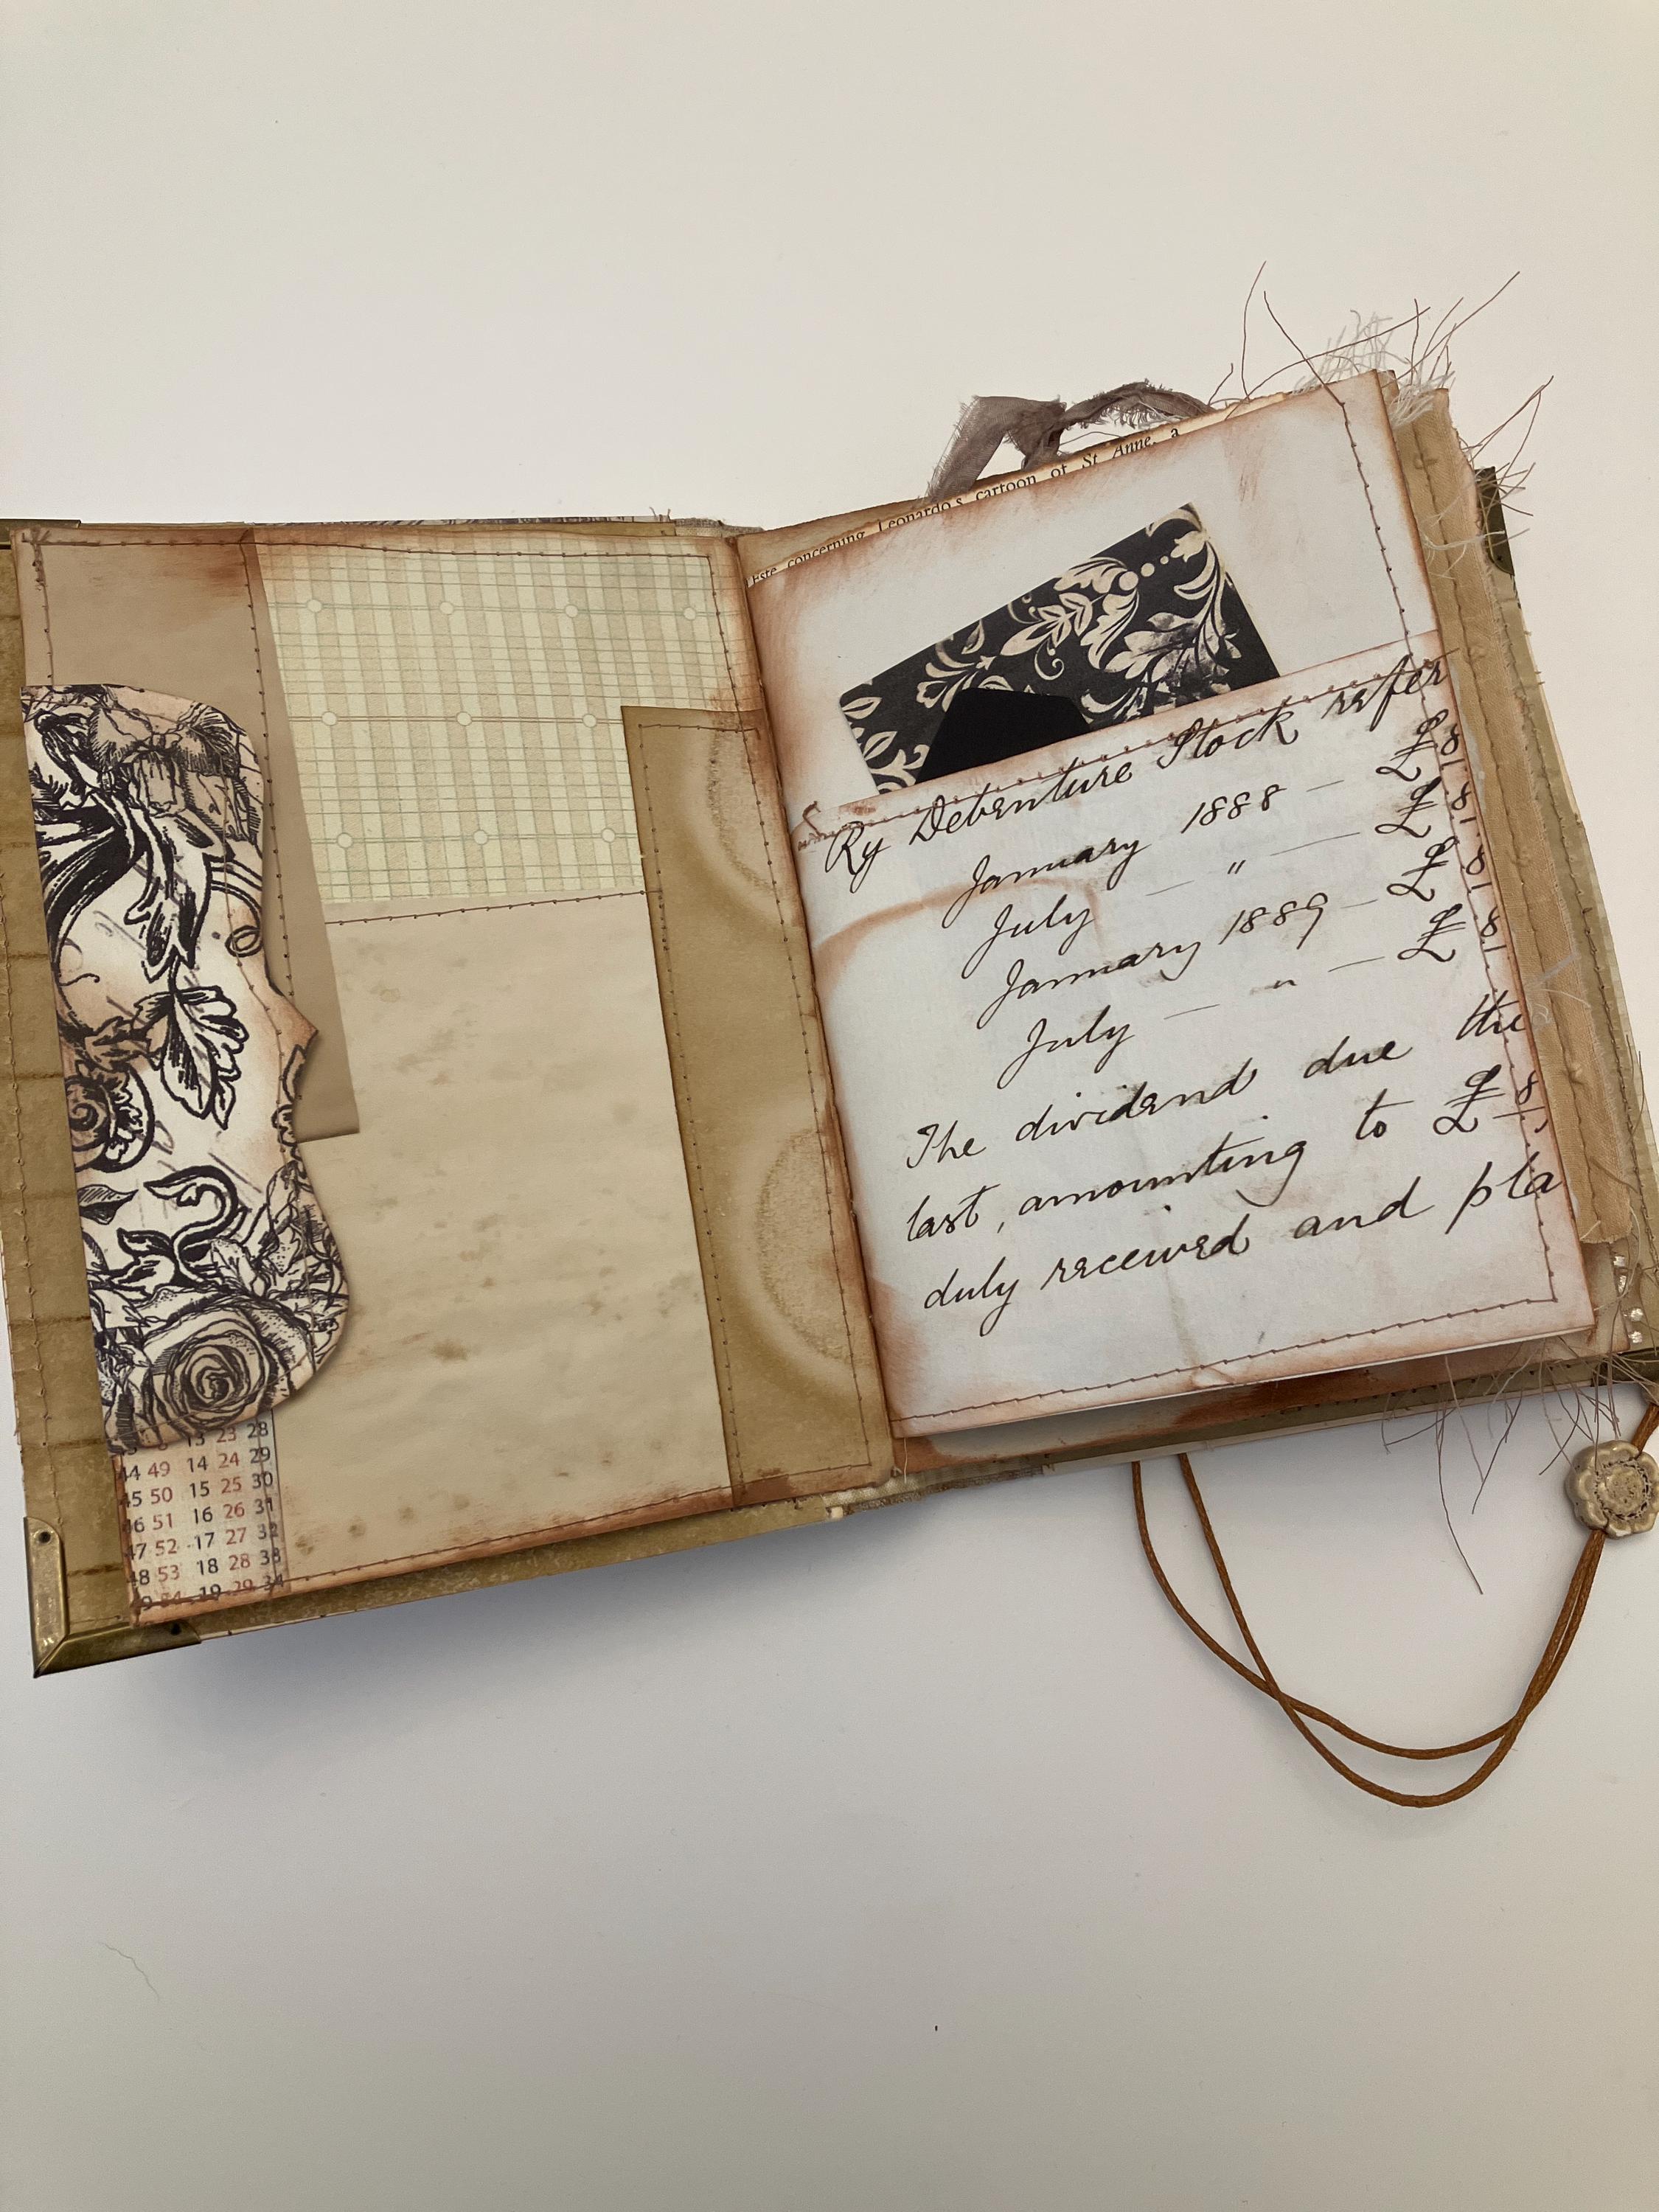 28
13 23 28
44 49 14 24 29
45 50 15 25 30
46 51 16 26 31
47 52 17 27 32
48 53 18 28 33
49 54 19 29 34
Este concerning Leonardo's cartoon of St Anne, a
Ry Debenture Stock refer
January 1888 — £8
July — " — £8
January 1889 — £8
July — " — £8
The dividend due the
last, amounting to £8
duly received and pla